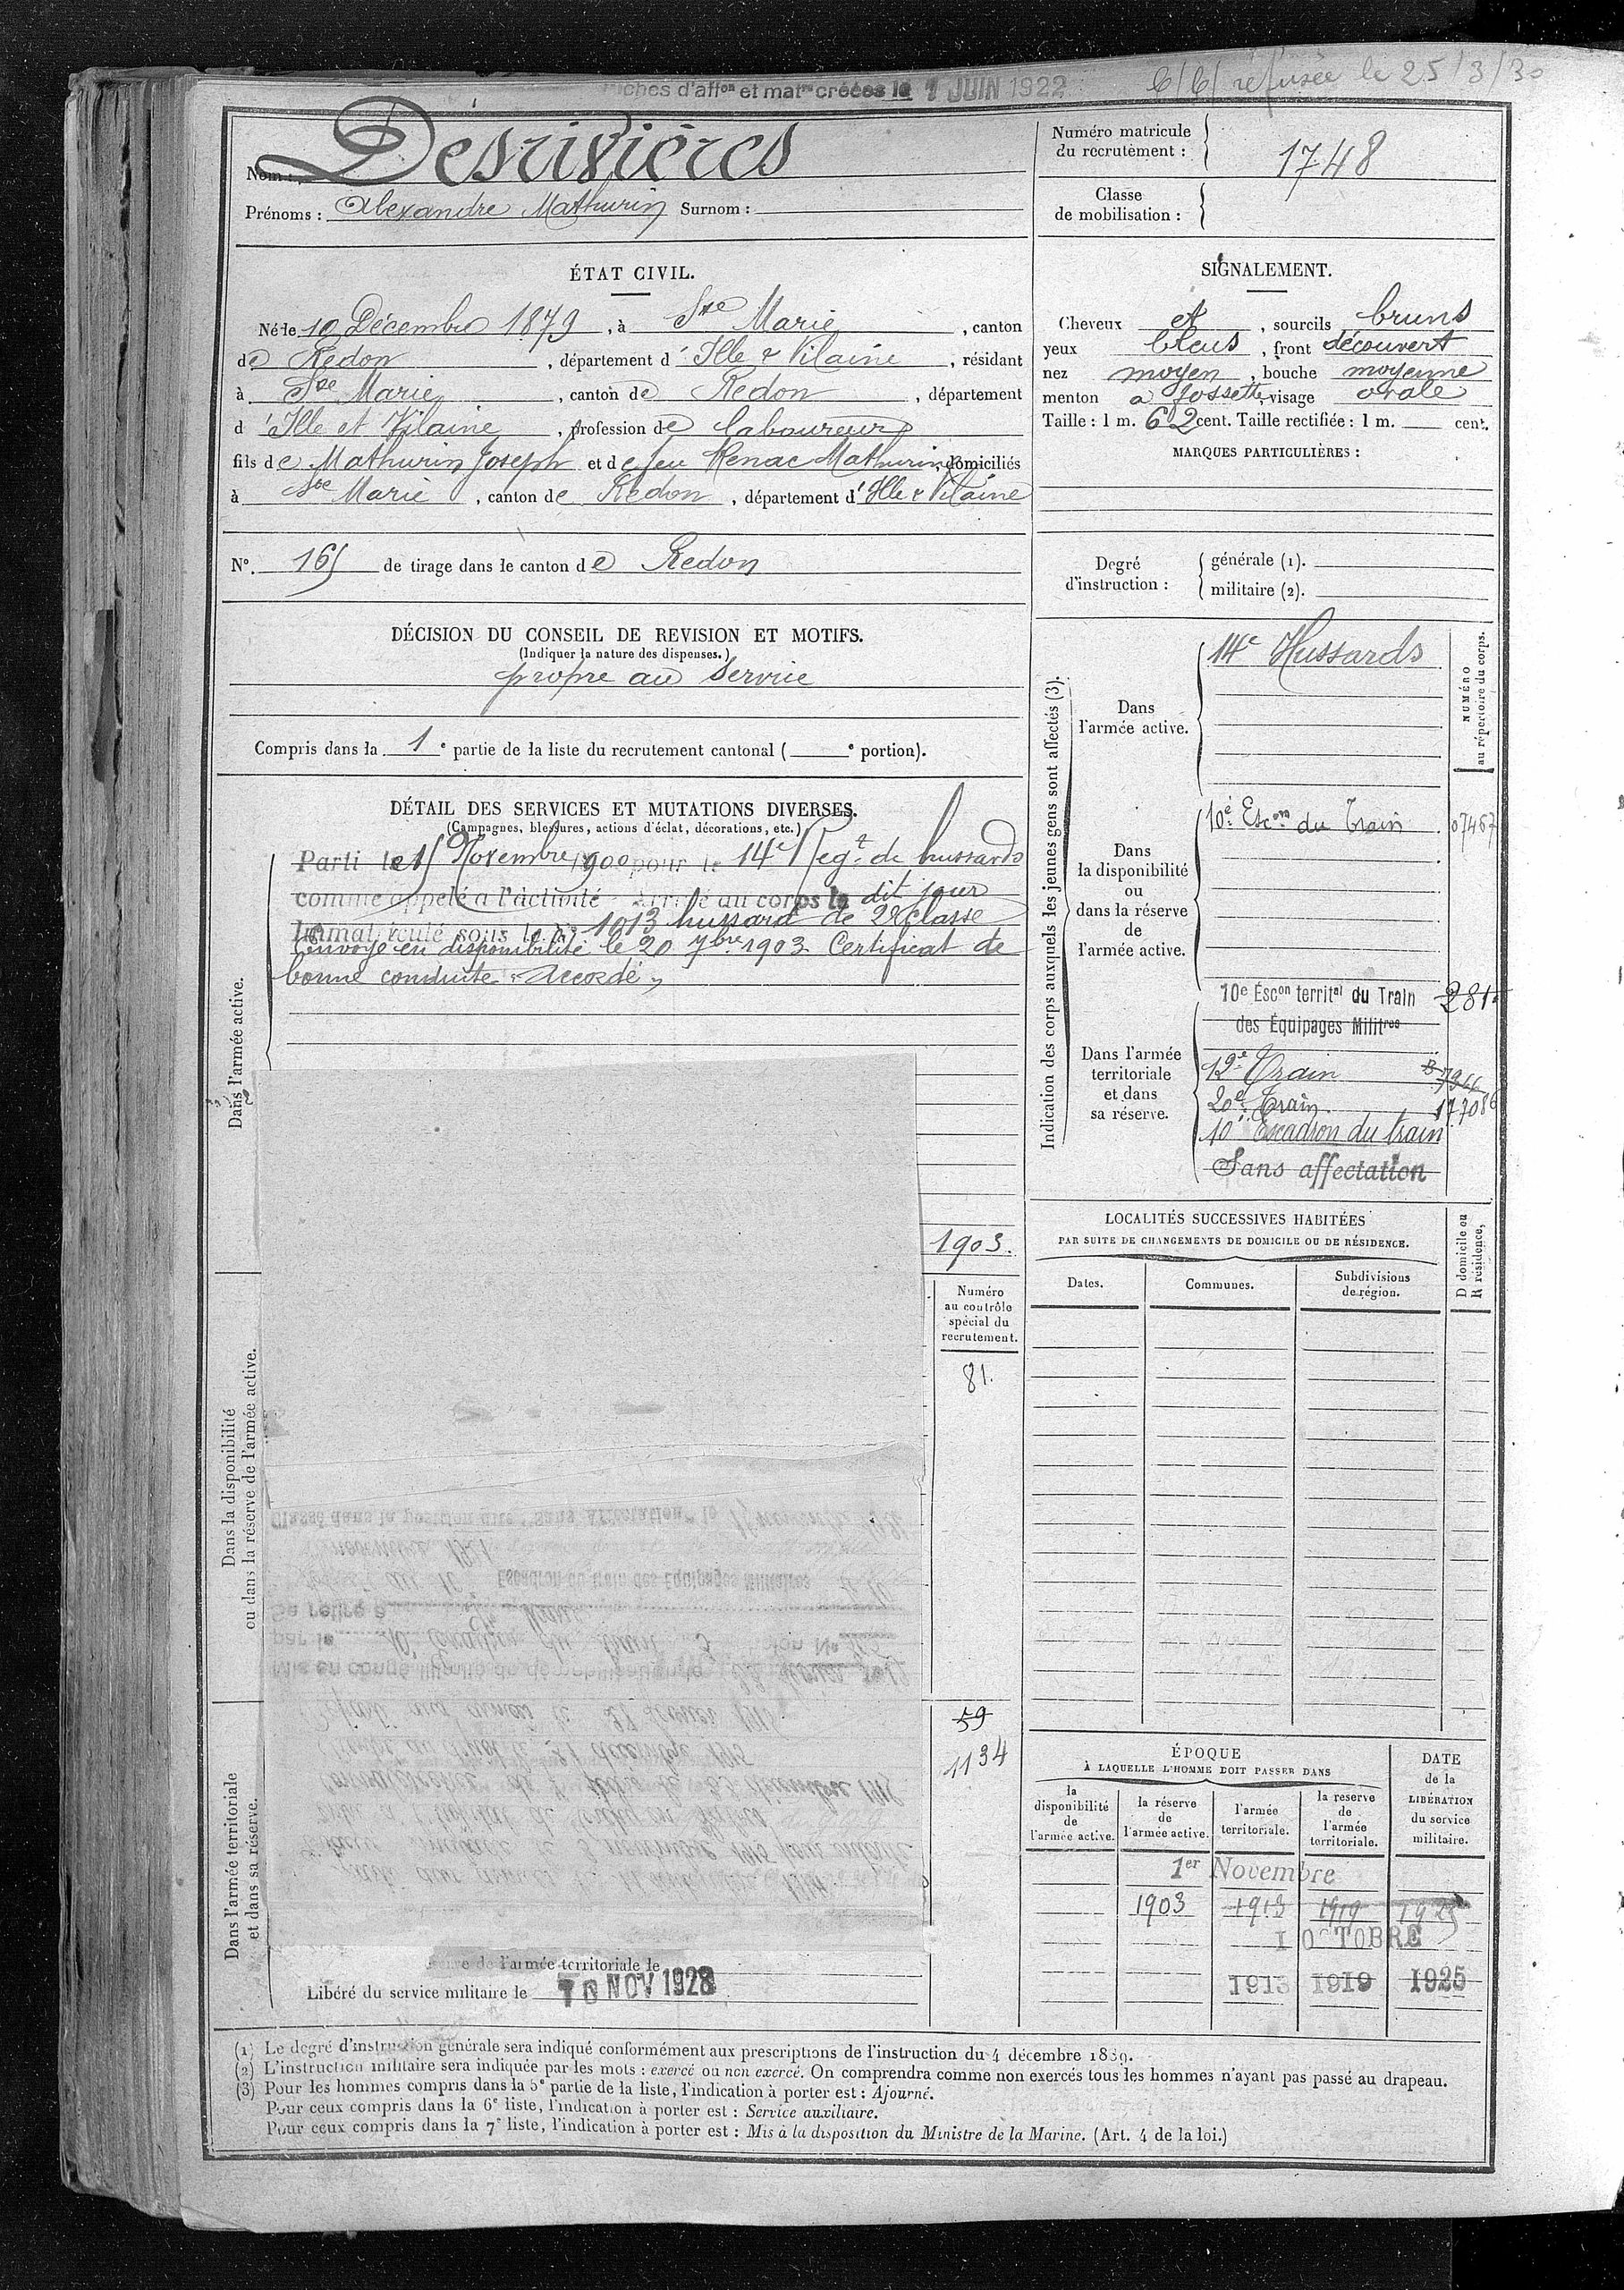 fiches d'aff^on et mat^re créées le 1 JUIN 1922
refusée le 25/3/30
Nom : Desrivières
Prénoms : Alexandre Mathurin Surnom :
Numéro matricule du recrutement : 1748
Classe de mobilisation :
ÉTAT CIVIL.
Né le 10 Décembre 1879, à Ste Marie, canton
de Redon, département d'Ille & Vilaine, résidant
à Ste Marie, canton de Redon, département
d'Ille et Vilaine, profession de laboureur
fils de Mathurin Joseph et de feu Renac Mathurine, domiciliés
à Ste Marie, canton de Redon, département d'Ille & Vilaine
N°. 165 de tirage dans le canton de Redon
SIGNALEMENT.
Cheveux et, sourcils bruns
yeux bleus, front découvert
nez moyen, bouche moyenne
menton a fossette, visage ovale
Taille : 1 m. 62 cent. Taille rectifiée : 1 m. cent.
MARQUES PARTICULIÈRES :
Degré d'instruction :
générale (1).
militaire (2).
DÉCISION DU CONSEIL DE REVISION ET MOTIFS.
(Indiquer la nature des dispenses.)
propre au service
Compris dans la 1e partie de la liste du recrutement cantonal ( e portion).
DÉTAIL DES SERVICES ET MUTATIONS DIVERSES.
(Campagnes, blessures, actions d'éclat, décorations, etc.)
Dans l'armée active.
Parti le 15 Novembre 1900 pour le 14e Regt de hussards
comme appelé a l'activité Arrivé au corps le dit jour
Immatriculé sous le n° 1013 hussard de 2e Classe
Envoyé en disponibilité le 20 7bre 1903 Certificat de
bonne conduite "Accordé"
1903.
Dans la disponibilité
ou dans la réserve de l'armée active.
Numéro
au contrôle
spécial du
recrutement.
81.
Dans l'armée territoriale
et dans sa réserve.
59
1134
de l'armée territoriale le
Libéré du service militaire le 10 NOV 1928
Indication des corps auxquels les jeunes gens sont affectés (3).
NUMÉRO
au répertoire du corps.
Dans
l'armée active.
14e Hussards
Dans
la disponibilité
ou
dans la réserve
de
l'armée active.
10e Escon du Train 07467
Dans l'armée
territoriale
et dans
sa réserve.
10e Éscon territal du Train 281
des Équipages Militres
12e Train
20e Train
10e Escadron du train
Sans affectation
LOCALITÉS SUCCESSIVES HABITÉES
PAR SUITE DE CHANGEMENTS DE DOMICILE OU DE RÉSIDENCE.
Dates.
Communes.
Subdivisions
de région.
D domicile ou
R résidence.
ÉPOQUE
À LAQUELLE L'HOMME DOIT PASSER DANS
la
disponibilité
de
l'armée active.
la réserve
de
l'armée active.
l'armée
territoriale.
la reserve
de
l'armée
territoriale.
DATE
de la
LIBÉRATION
du service
militaire.
1er Novembre
1903 1913 1919 1925
1 OCTOBRE
1913 1919 1925
(1) Le degré d'instruction générale sera indiqué conformément aux prescriptions de l'instruction du 4 décembre 1889.
(2) L'instruction militaire sera indiquée par les mots : exercé ou non exercé. On comprendra comme non exercés tous les hommes n'ayant pas passé au drapeau.
(3) Pour les hommes compris dans la 5e partie de la liste, l'indication à porter est : Ajourné.
Pour ceux compris dans la 6e liste, l'indication à porter est : Service auxiliaire.
Pour ceux compris dans la 7e liste, l'indication à porter est : Mis à la disposition du Ministre de la Marine. (Art. 4 de la loi.)